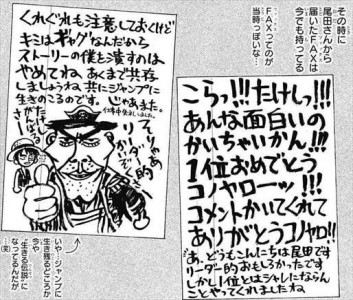 その時に
尾田さんから
届いたFAXは
今でも持ってる
FAXってのが
当時っぽいな…
こらっ!!!たけしっ!!!
あんな面白いの
かいちゃいかん!!!
1位おめでとう
コノヤローッ!!!
コメントかいてくれて
ありがとうコノヤロ!!
あ、どうもこんにちは尾田です
リーダー的おもしろかったです
しかし1位とはシャレにならん
ことやってくれましたね
くれぐれも注意しておくけど
キミはギャグなんだから
ストーリーの僕を潰すのは
やめてね。あくまで共存
しましょうね。共にジャンプに
生きのこるのです。
じゃあまた。
そりゃあ
リーダー的
いや…ジャンプに
生き残るどころか
今や
“生きる伝説”に
なってるんだが
…(笑)